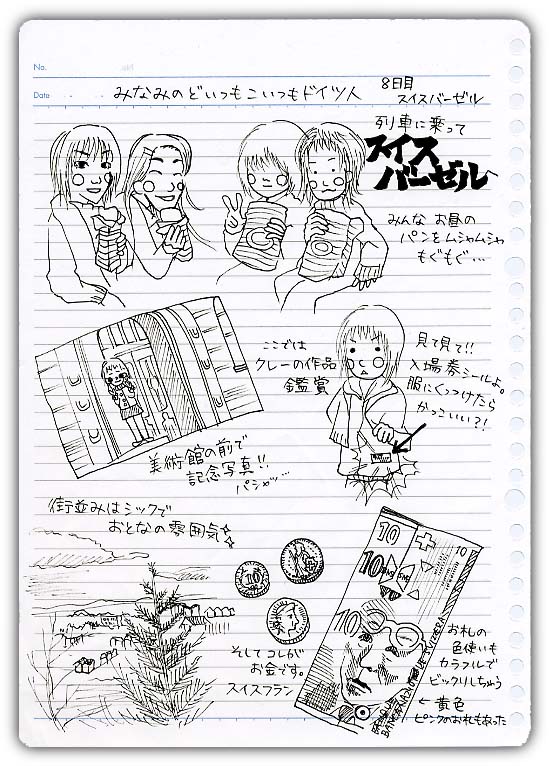 No.
Date
みなみのどいつもこいつもドイツ人
8日目
スイスバーゼル
列車に乗って
スイス
バーゼルへ
みんな お昼の
パンをムシャムシャ
もぐもぐ…
ここでは
クレーの作品
鑑賞
見て見て!!
入場券シールよ。
服にくっつけたら
かっこいい?!
美術館の前で
記念写真!!
パシャッ…
街並みはシックで
おとなの雰囲気
10
そしてコレが
お金です。
スイスフラン
10
10
10
お札の
色使いも
カラフルで
ビックリしちゃう
← 黄色
ピンクのおれもあった